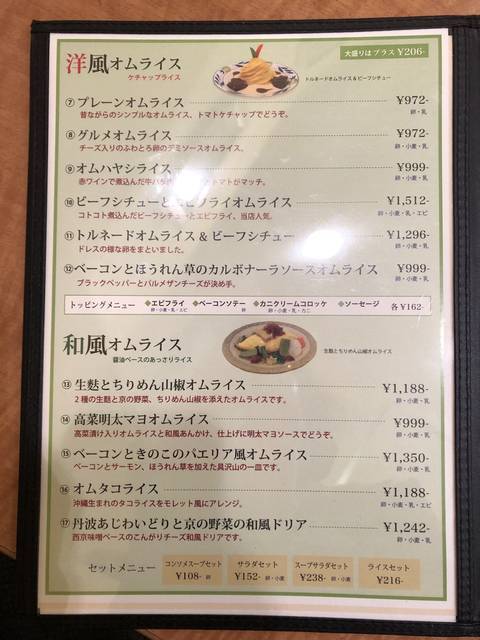 洋風オムライス
ケチャップライス
大盛りはプラス ¥206-
トルネードオムライス&ビーフシチュー
⑦ プレーンオムライス ¥972-
昔ながらのシンプルなオムライス、トマトケチャップでどうぞ。 卵・乳
⑧ グルメオムライス ¥972-
チーズ入りのふわとろ卵のデミソースオムライス。 卵・小麦・乳
⑨ オムハヤシライス ¥999-
赤ワインで煮込んだ牛バラ トマトがマッチ。 卵・小麦・乳
⑩ ビーフシチューとエビフライオムライス ¥1,512-
コトコト煮込んだビーフシチューとエビフライ、当店人気。 卵・小麦・乳・エビ
⑪ トルネードオムライス&ビーフシチュー ¥1,296-
ドレスの様な卵をまといました。 卵・小麦・乳
⑫ ベーコンとほうれん草のカルボナーラソースオムライス ¥999-
ブラックペッパーとパルメザンチーズが決め手。 卵・小麦・乳
トッピングメニュー ◆エビフライ ◆ベーコンソテー ◆カニクリームコロッケ ◆ソーセージ 各¥162-
卵・小麦・乳・エビ 卵 卵・小麦・乳・カニ
和風オムライス
醤油ベースのあっさりライス
生麩とちりめん山椒オムライス
⑬ 生麩とちりめん山椒オムライス ¥1,188-
2種の生麩と京の野菜、ちりめん山椒を添えたオムライスです。 卵・小麦・乳
⑭ 高菜明太マヨオムライス ¥999-
高菜漬け入りオムライスと和風あんかけ、仕上げに明太マヨソースでどうぞ。 卵・小麦・乳
⑮ ベーコンときのこのパエリア風オムライス ¥1,350-
ベーコンとサーモン、ほうれん草を加えた具沢山の一皿です。 卵・小麦・乳
⑯ オムタコライス ¥1,188-
沖縄生まれのタコライスをモレット風にアレンジ。 卵・小麦・乳・エビ
⑰ 丹波あじわいどりと京の野菜の和風ドリア ¥1,242-
西京味噌ベースのこんがりチーズ和風ドリアです。 卵・小麦・乳
セットメニュー
コンソメスープセット
¥108- 卵
サラダセット
¥152- 卵・小麦
スープサラダセット
¥238- 卵・小麦
ライスセット
¥216-